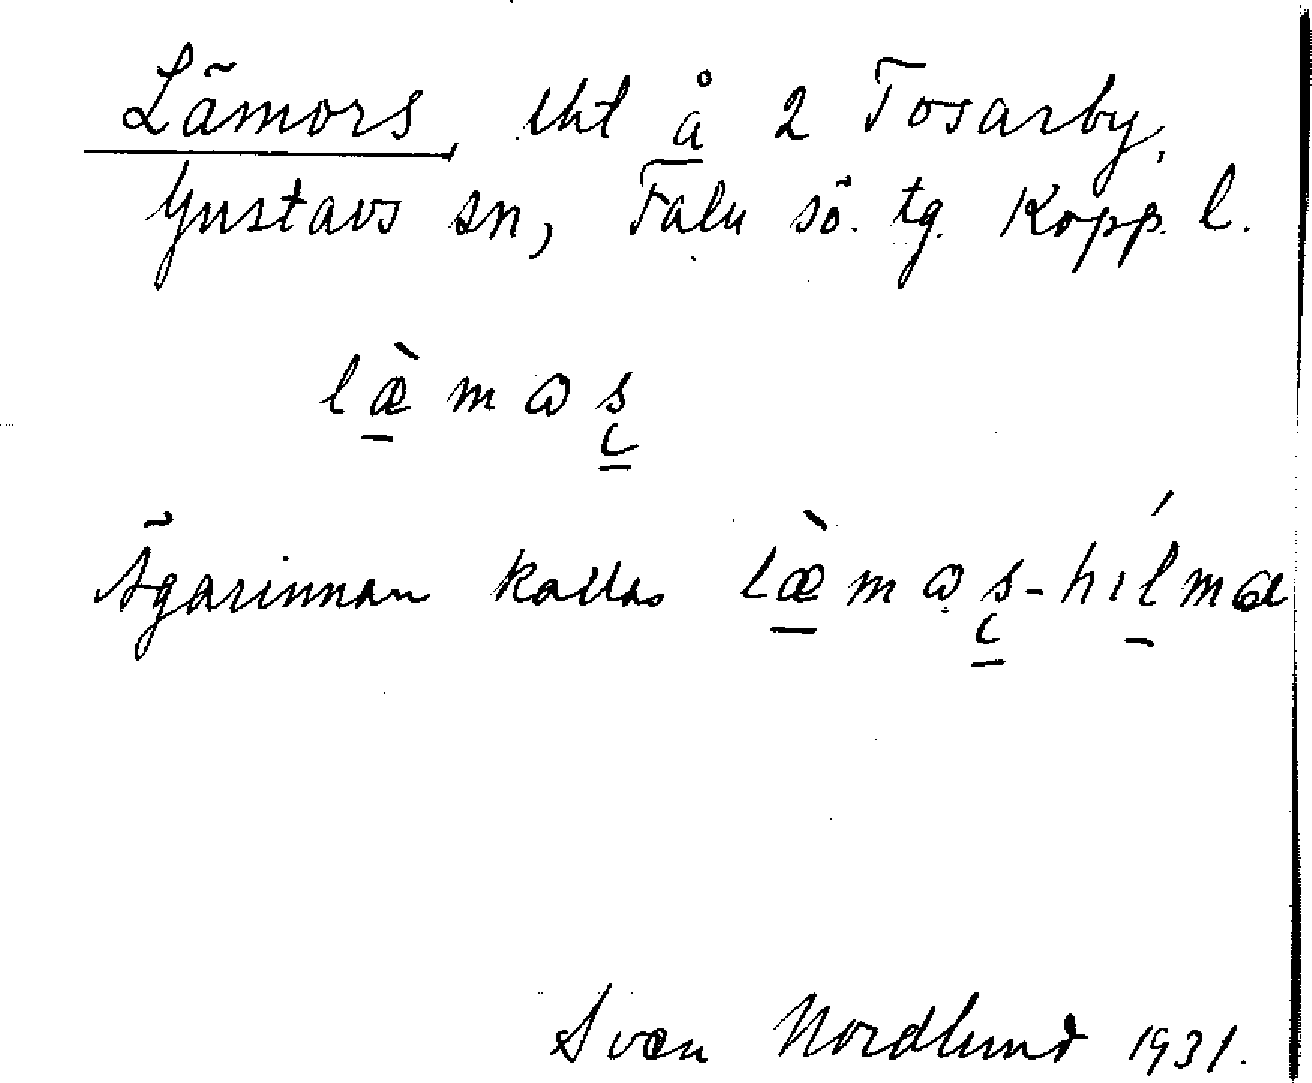 Lämors, tht å 2 Tosarby,
Gustavs sn, Falu sö. tg. Kopp. l.
læ̀mɷs̨
Ägarinnan kallas læ̀mɷs̨-hılmɑ
Sven Nordlund 1931.